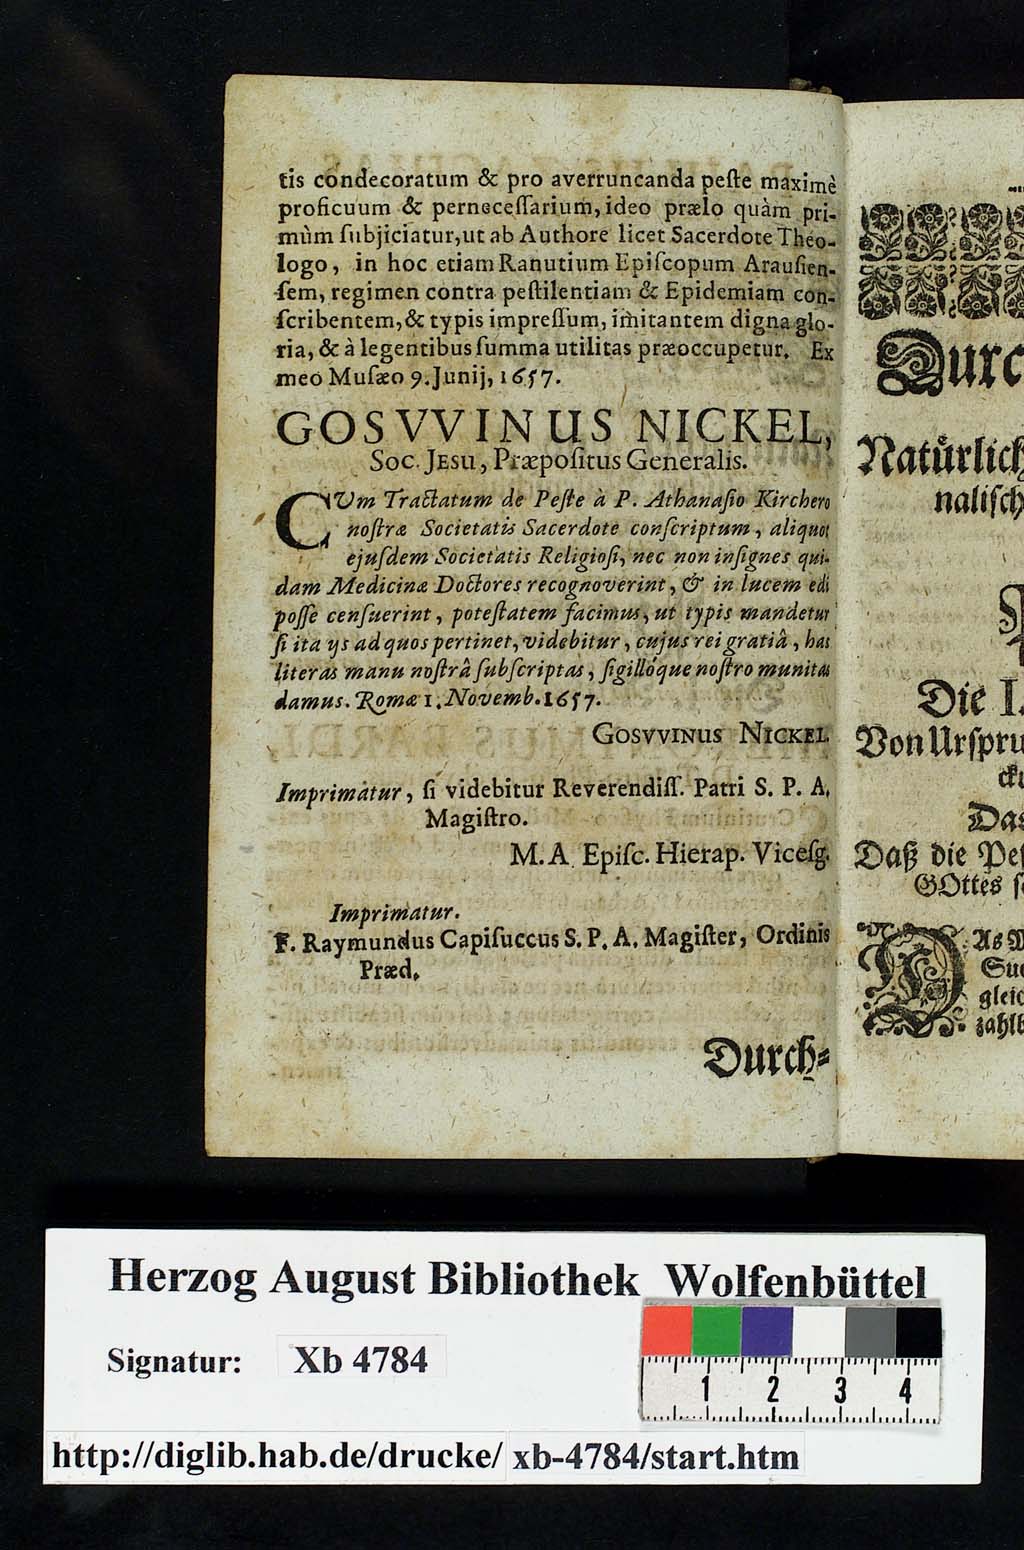 tis condecoratum & pro averruncanda peſte maximè
proficuum & perneceſſarium, ideo prælo quàm pri-
mùm ſubjiciatur, ut ab Authore licet Sacerdote Theo-
logo, in hoc etiam Ranutium Epiſcopum Arauſien-
ſem, regimen contra peſtilentiam & Epidemiam con-
ſcribentem, & typis impreſſum, imitantem digna glo-
ria, & à legentibus ſumma utilitas præoccupetur. Ex
meo Muſæo 9. Junij, 1657.
GOSVVINUS NICKEL,
Soc. JESU, Præpoſitus Generalis.
CUm Tractatum de Peſte à P. Athanaſio Kirchero
noſtræ Societatis Sacerdote conſcriptum, aliquot
ejuſdem Societatis Religioſi, nec non inſignes qui-
dam Medicinæ Doctores recognoverint, & in lucem edi
poſſe cenſuerint, poteſtatem facimus, ut typis mandetur
ſi ita ijs ad quos pertinet, videbitur, cujus rei gratiâ, has
literas manu noſtrâ ſubſcriptas, ſigillóque noſtro munitas
damus. Romæ 1. Novemb. 1657.
GOSVVINUS NICKEL.
Imprimatur, ſi videbitur Reverendiſſ. Patri S. P. A.
Magiſtro.
M. A. Epiſc. Hierap. Viceſg.
Imprimatur.
F. Raymundus Capiſuccus S. P. A. Magiſter, Ordinis
Præd.
Durch-
Durc
Natürlich
naliſch
Die I.
Von Urſpru
cku
Das
Daß die Peſ
GOttes ſ
DAs
Suc
gleic
zahlb
Herzog August Bibliothek Wolfenbüttel
Signatur: Xb 4784
1 2 3 4
http://diglib.hab.de/drucke/ xb-4784/start.htm